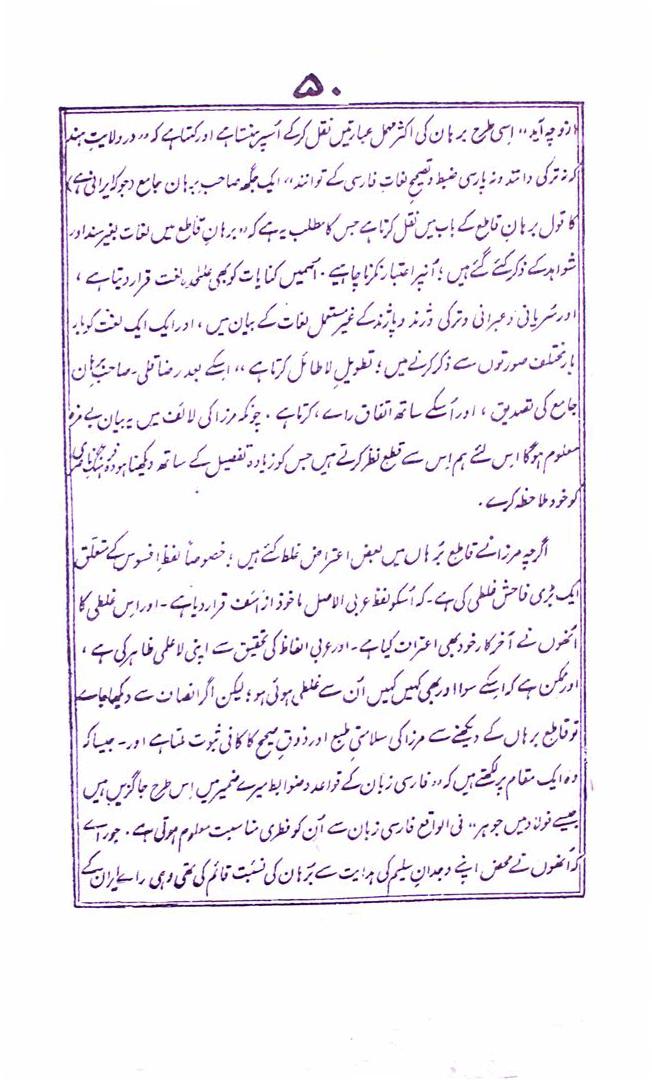 ۵۰
ازو چہ آید،، اِسی طرح برہان کی اکثر مہمل عبارتیں نقل کرکے اُسپر ہنستا ہے اور کہتا ہے کہ ،،در ولایتِ ہند
کہ نہ ترکی دانند و نہ پارسی ضبط و تصحیح لغاتِ فارسی کے توانند،، ایک جگہ صاحبِ برہان جامع (جو کہ ایرانی ہے)
کا قول برہانِ قاطع کے باب میں نقل کرتا ہے جس کا مطلب یہ ہے کہ ،،برہانِ قاطع میں لغات بغیر سند اور
شواہد کے ذکر کئے گئے ہیں ؛ اُنپر اعتبار نکرنا چاہیے ۔ اسمیں کنایات کو بھی علٰحدہ لغت قرار دیتا ہے ،
اور سُریانی و عبرانی و ترکی و ژند و پاژند کے غیر مستعمل لغات کے بیان میں ، اور ایک ایک لغت کو بار
بار مختلف صورتوں سے ذکر کرنے میں ؛ تطویلِ لاطائل کرتا ہے ،، اسکے بعد رضا قلی ۔ صاحبِ برہان
جامع کی تصدیق ، اور اُسکے ساتھ اتفاقِ راے ، کرتا ہے ۔ چونکہ مرزا کی لائف میں یہ بیان بے مزہ
معلوم ہوگا اِس لئے ہم اِس سے قطع نظر کرتے ہیں جس کو زیادہ تفصیل کے ساتھ دیکھنا ہو وہ فرہنگِ ناصری
کو خود ملاحظہ کرے ۔
اگرچہ مرزا نے قاطع بُرہاں میں بعض اعتراض غلط کئے ہیں ؛ خصوصاً لفظِ افسوس کے متعلق
ایک بڑی فاحش غلطی کی ہے ۔ کہ اُسکو لفظ عربی الاصل ماخوذ از اَسَف قرار دیا ہے ۔ اور اِس غلطی کا
اُنھوں نے آخرکار خود بھی اعتراف کیا ہے ۔ اور عربی الفاظ کی تحقیق سے اپنی لاعلمی ظاہر کی ہے ،
اور ممکن ہے کہ اِسکے سوا اور بھی کہیں کہیں اُن سے غلطی ہوئی ہو ؛ لیکن اگر انصاف سے دیکھا جاے
تو قاطع برہاں کے دیکھنے سے مرزا کی سلامتیِ طبع اور ذوقِ صحیح کا کافی ثبوت ملتا ہے اور ۔ جیسا کہ
وہ ایک مقام پر لکھتے ہیں کہ ،،فارسی زبان کے قواعد و ضوابط میرے ضمیر میں اِس طرح جاگزیں ہیں
جیسے فولاد میں جوہر،، فی الواقع فارسی زبان سے اُن کو فطری مناسبت معلوم ہوتی ہے ۔ جو راے
کہ اُنھوں نے محض اپنے وجدانِ سلیم کی ہدایت سے بُرہان کی نسبت قائم کی تھی وہی راے ایران کے